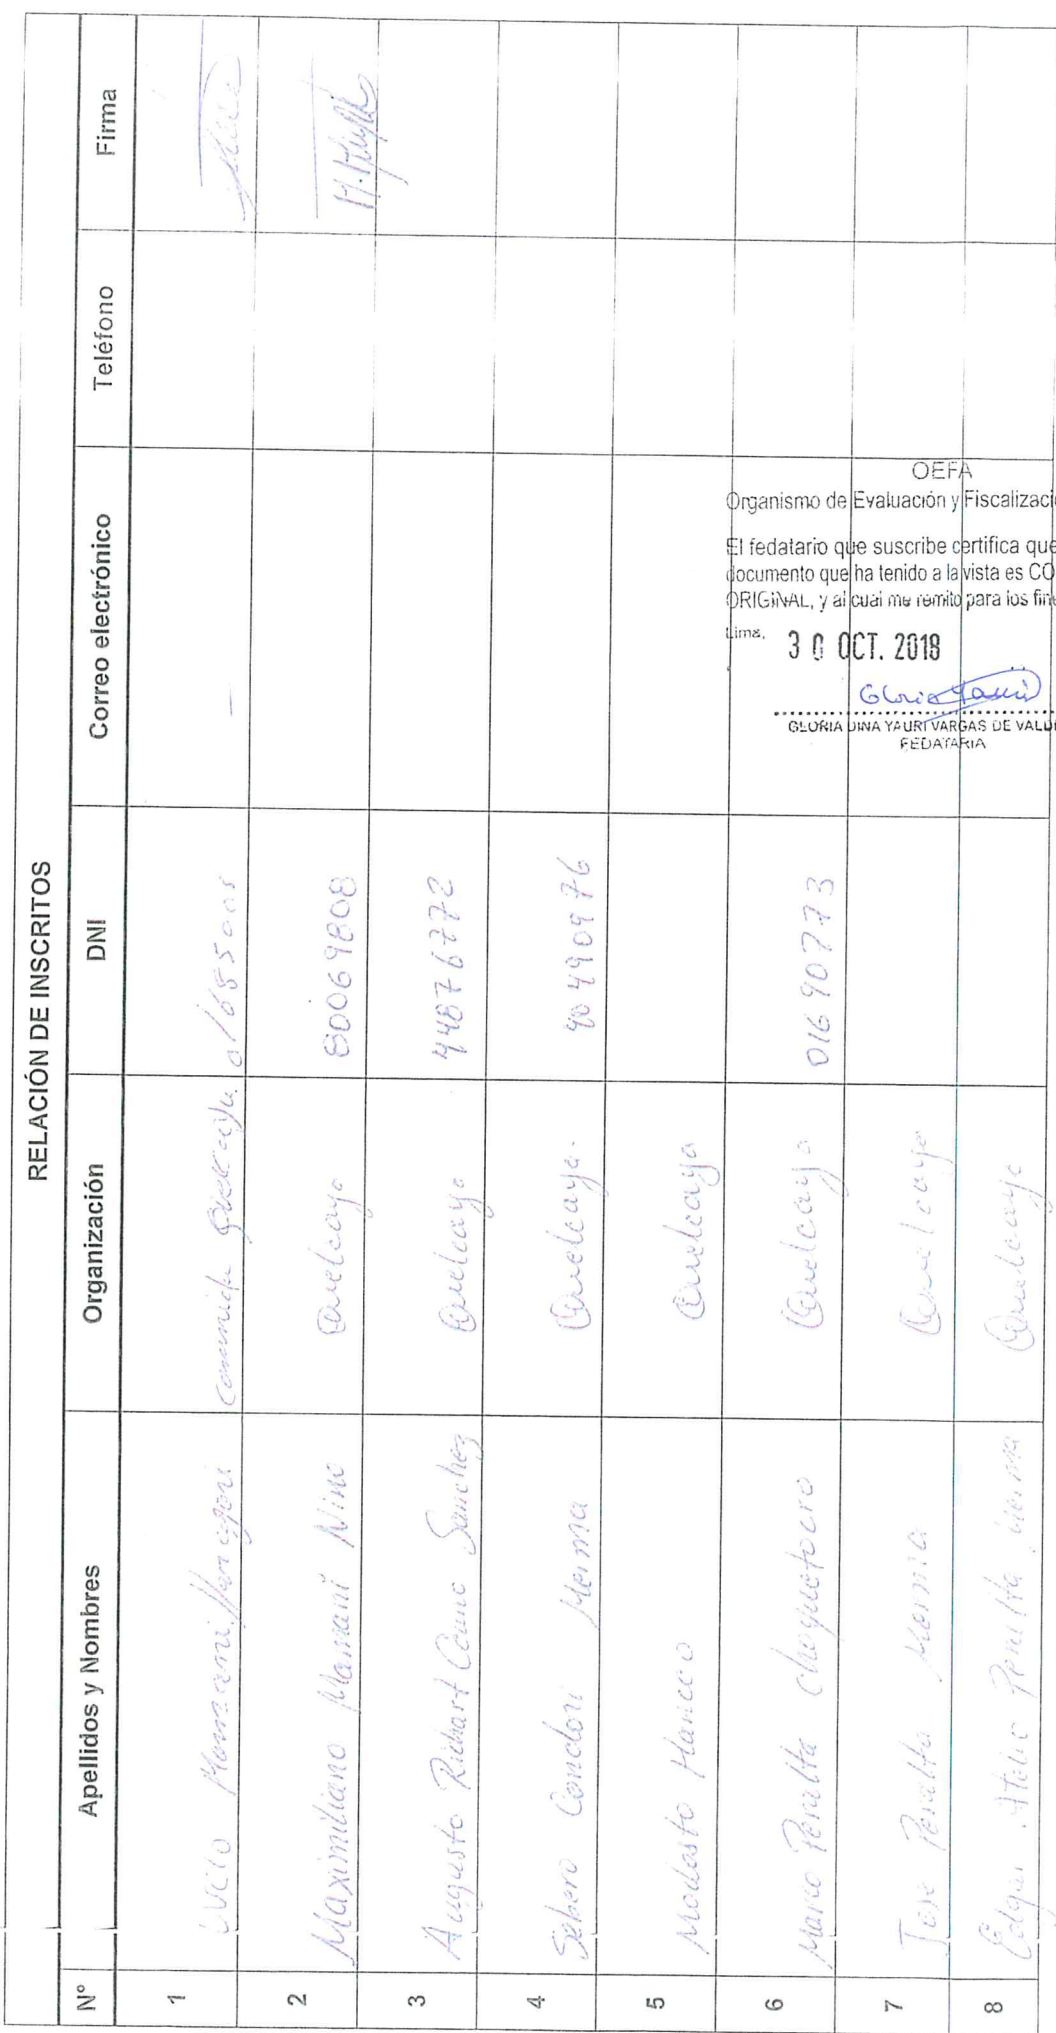 RELACIÓN DE INSCRITOS
N° Apellidos y Nombres Organización DNI Correo electrónico Teléfono Firma
1 Lucio Mamani 01685005 —
2 Maximiliano Mamani Nino Quelcaya 80069808
3 Augusto Richart Cauna Sanchez Quelcaya 44876772
4 Sebero Condori Merma Quelcaya 40490976
5 Modesto Hancco Quelcaya
6 Mario Peralta choquetocro Quelcaya 01690773
7 Jose Peralta Merma Quelcaya
8 Edgar Peralta Merma Quelcaya
OEFA
Organismo de Evaluación y Fiscalizaci
El fedatario que suscribe certifica que
documento que ha tenido a la vista es CO
ORIGINAL, y al cual me remito para los fine
Lima, 30 OCT. 2018
GLORIA DINA YAURI VARGAS DE VALD
FEDATARIA